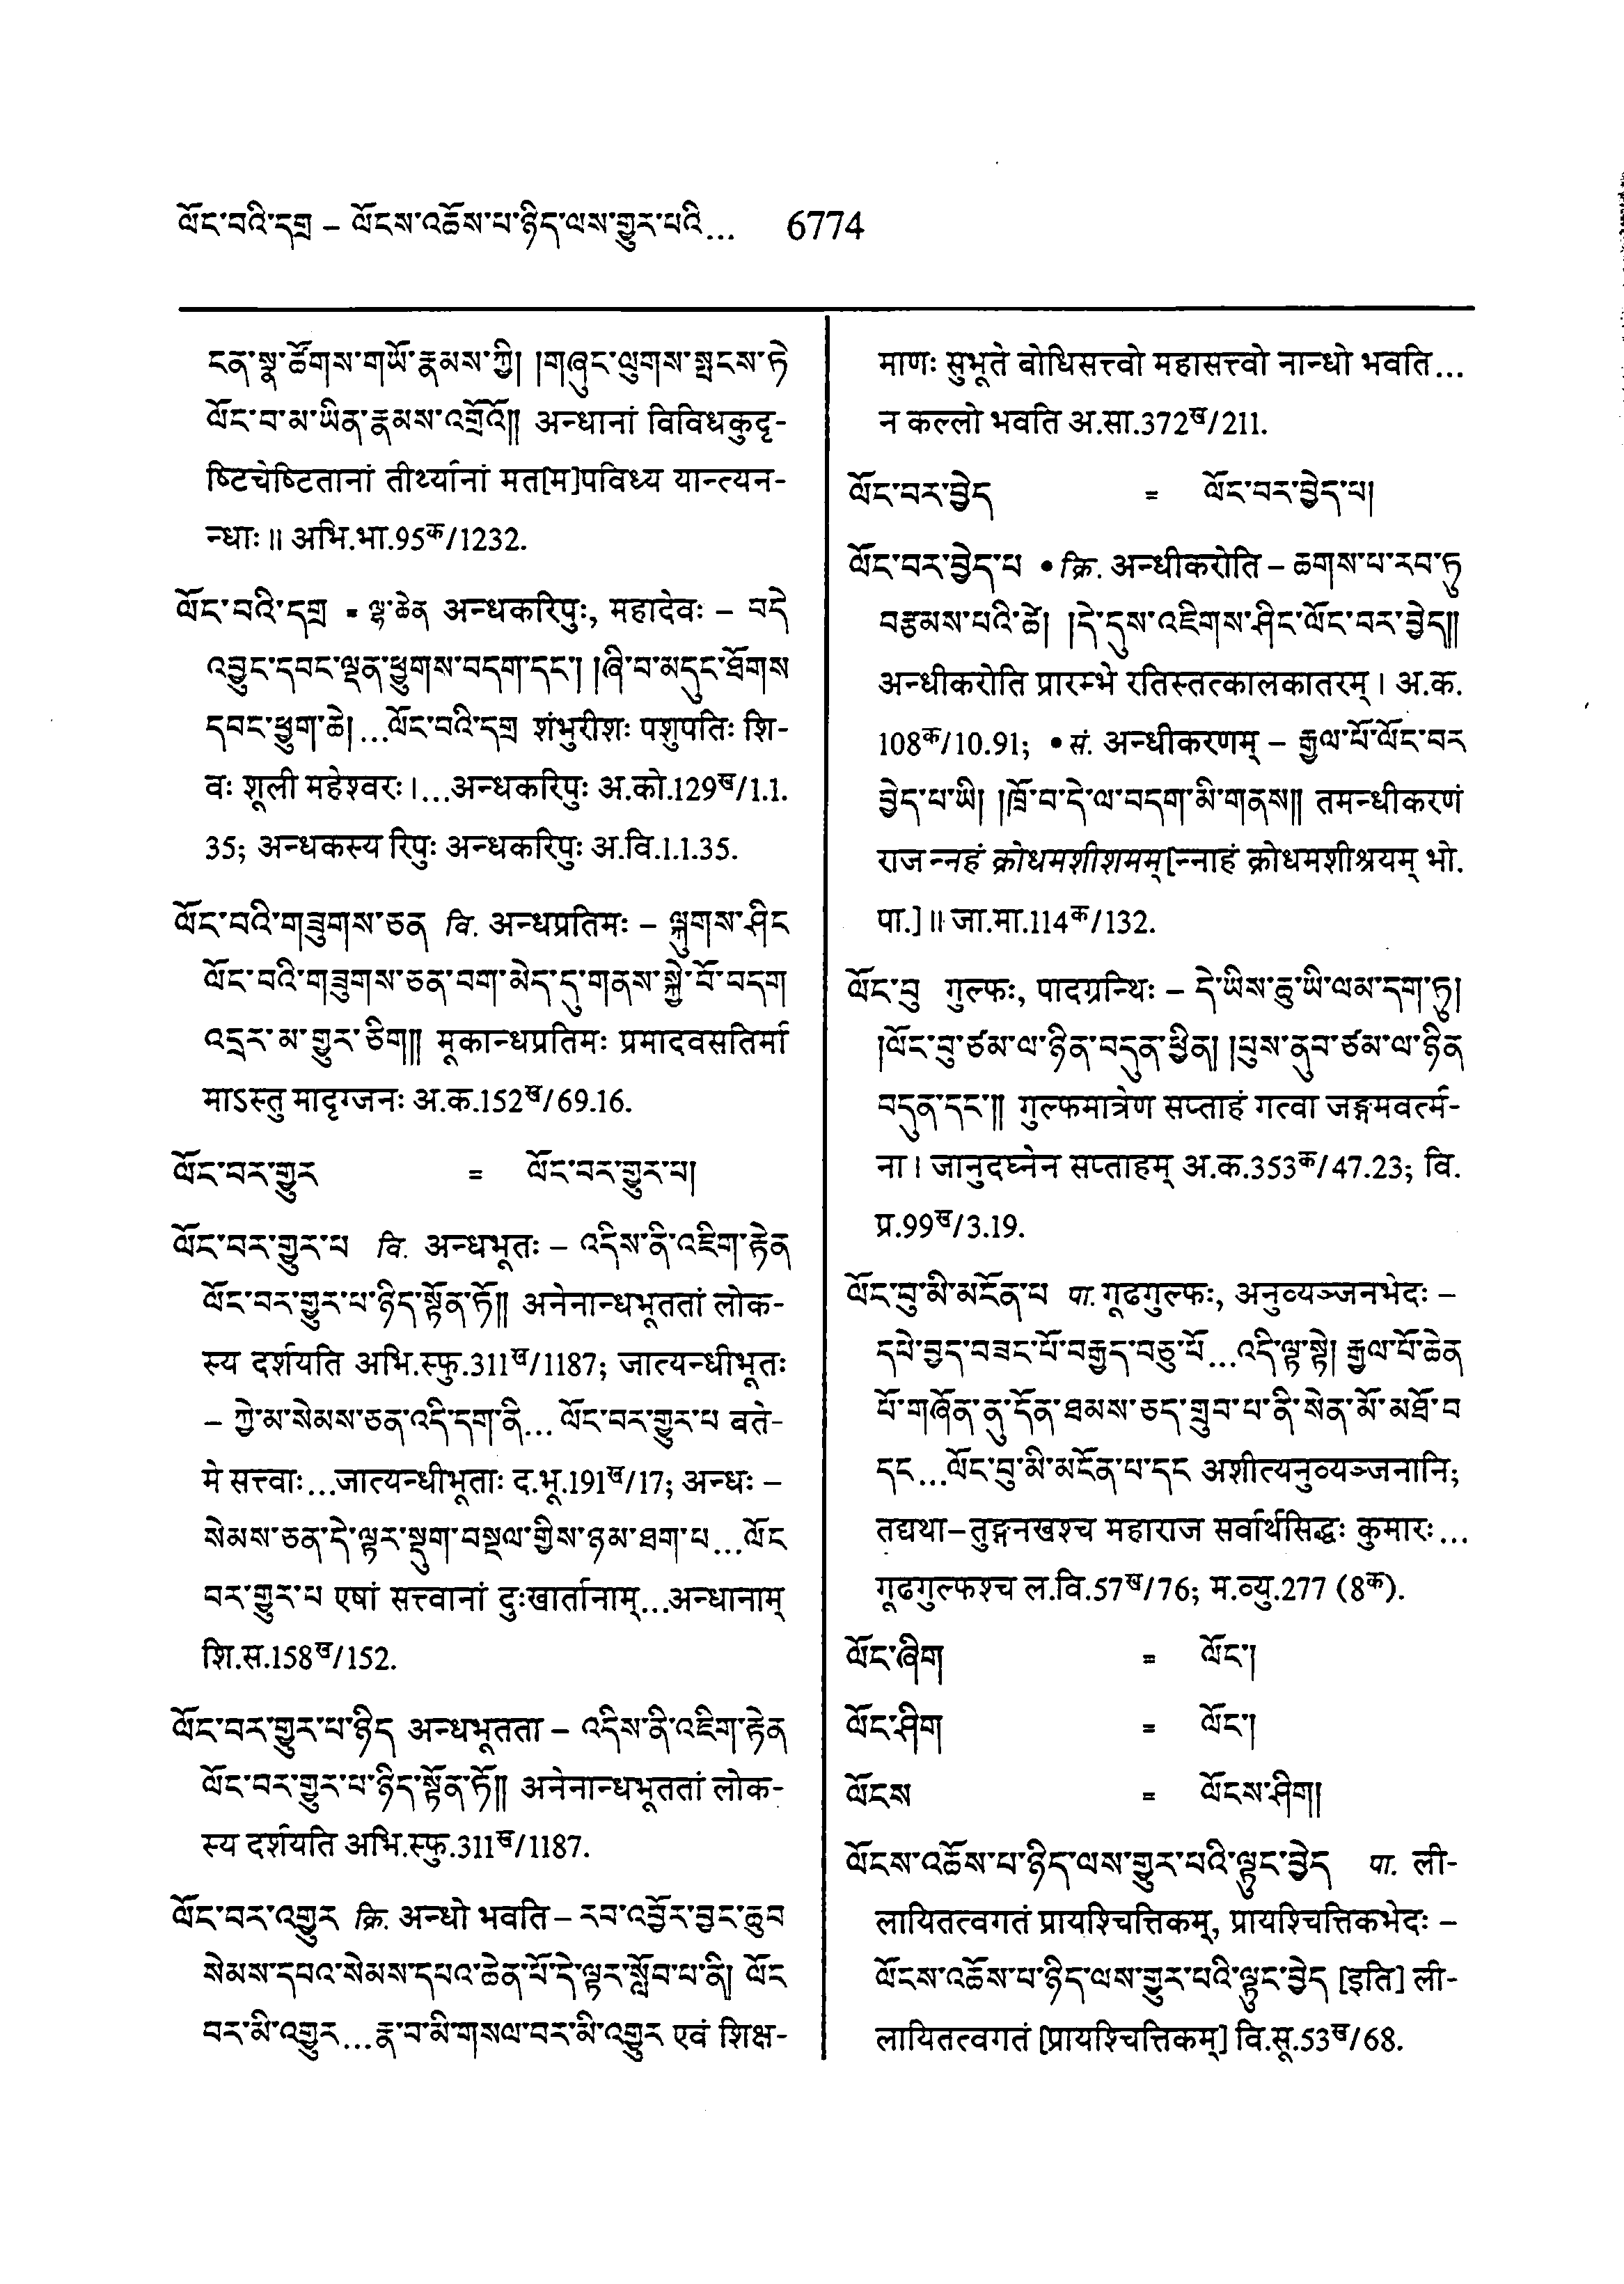 ལོང་བའི་དགྲ – ལོངས་འཆོས་པ་ཉིད་ལས་གྱུར་པའི... 6774
ངན་སྣ་ཚོགས་གཡོ་རྣམས་ཀྱི། །གཞུང་ལུགས་སྤངས་ཏེ
ལོང་བ་མ་ཡིན་རྣམས་འགྲོའོ།། अन्धानां विविधकुदृ-
ष्टिचेष्टितानां तीर्थ्यानां मत[म]पविध्य यान्त्यन-
न्धाः ॥ अभि.भा.95क/1232.
ལོང་བའི་དགྲ = ལྷ་ཆེན अन्धकरिपुः, महादेवः – བདེ
འབྱུང་དབང་ལྡན་ཕྱུགས་བདག་དང་། །ཞི་བ་མདུང་ཐོགས
དབང་ཕྱུག་ཆེ། ...ལོང་བའི་དགྲ शंभुरीशः पशुपतिः शि-
वः शूली महेश्वरः ।...अन्धकरिपुः अ.को.129ख/1.1.
35; अन्धकस्य रिपुः अन्धकरिपुः अ.वि.1.1.35.
ལོང་བའི་གཟུགས་ཅན वि. अन्धप्रतिमः – ལྐུགས་ཤིང
ལོང་བའི་གཟུགས་ཅན་བག་མེད་དུ་གནས་སྐྱེ་བོ་བདག
འདྲར་མ་གྱུར་ཅིག།། मूकान्धप्रतिमः प्रमादवसतिर्मा
माऽस्तु मादृग्जनः अ.क.152ख/69.16.
ལོང་བར་གྱུར = ལོང་བར་གྱུར་པ།
ལོང་བར་གྱུར་པ वि. अन्धभूतः – འདིས་ནི་འཇིག་རྟེན
ལོང་བར་གྱུར་པ་ཉིད་སྟོན་ཏོ།། अनेनान्धभूततां लोक-
स्य दर्शयति अभि.स्फु.311ख/1187; जात्यन्धीभूतः
– ཀྱེ་མ་སེམས་ཅན་འདི་དག་ནི... ལོང་བར་གྱུར་པ बते-
मे सत्त्वाः...जात्यन्धीभूताः द.भू.191ख/17; अन्धः –
སེམས་ཅན་དེ་ལྟར་སྡུག་བསྔལ་གྱིས་ཉམ་ཐག་པ...ལོང
བར་གྱུར་པ एषां सत्त्वानां दुःखार्तानाम्...अन्धानाम्
शि.स.158ख/152.
ལོང་བར་གྱུར་པ་ཉིད अन्धभूतता – འདིས་ནི་འཇིག་རྟེན
ལོང་བར་གྱུར་པ་ཉིད་སྟོན་ཏོ།། अनेनान्धभूततां लोक-
स्य दर्शयति अभि.स्फु.311ख/1187.
ལོང་བར་འགྱུར क्रि. अन्धो भवति – རབ་འབྱོར་བྱང་ཆུབ
སེམས་དཔའ་སེམས་དཔའ་ཆེན་པོ་དེ་ལྟར་སློབ་པ་ནི། ལོང
བར་མི་འགྱུར...རྣ་བ་མི་གསལ་བར་མི་འགྱུར एवं शिक्ष-
माणः सुभूते बोधिसत्त्वो महासत्त्वो नान्धो भवति...
न कल्लो भवति अ.सा.372ख/211.
ལོང་བར་བྱེད = ལོང་བར་བྱེད་པ།
ལོང་བར་བྱེད་པ • क्रि. अन्धीकरोति – ཆགས་པ་རབ་ཏུ
བརྩམས་པའི་ཚེ། །དེ་དུས་འཇིགས་ཤིང་ལོང་བར་བྱེད།།
अन्धीकरोति प्रारम्भे रतिस्तत्कालकातरम् । अ.क.
108क/10.91; • सं. अन्धीकरणम् – རྒྱལ་པོ་ལོང་བར
བྱེད་པ་ཡི། །ཁྲོ་བ་དེ་ལ་བདག་མི་གནས།། तमन्धीकरणं
राज न्नहं क्रोधमशीशमम्[न्नाहं क्रोधमशीश्रयम् भो.
पा.] ॥ जा.मा.114क/132.
ལོང་བུ गुल्फः, पादग्रन्थिः – དེ་ཡིས་ཆུ་ཡི་ལམ་དག་ཏུ།
།ལོང་བུ་ཙམ་ལ་ཉིན་བདུན་ཕྱིན། །པུས་ནུབ་ཙམ་ལ་ཉིན
བདུན་དང་།། गुल्फमात्रेण सप्ताहं गत्वा जङ्गमवर्त्म-
ना । जानुदघ्नेन सप्ताहम् अ.क.353क/47.23; वि.
प्र.99ख/3.19.
ལོང་བུ་མི་མངོན་པ पा. गूढगुल्फः, अनुव्यञ्जनभेदः –
དཔེ་བྱད་བཟང་པོ་བརྒྱད་བཅུ་པོ...འདི་ལྟ་སྟེ། རྒྱལ་པོ་ཆེན
པོ་གཞོན་ནུ་དོན་ཐམས་ཅད་གྲུབ་པ་ནི་སེན་མོ་མཐོ་བ
དང...ལོང་བུ་མི་མངོན་པ་དང अशीत्यनुव्यञ्जनानि;
तद्यथा–तुङ्गनखश्च महाराज सर्वार्थसिद्धः कुमारः...
गूढगुल्फश्च ल.वि.57ख/76; म.व्यु.277 (8क).
ལོང་ཞིག = ལོང་།
ལོང་ཤིག = ལོང་།
ལོངས = ལོངས་ཤིག།
ལོངས་འཆོས་པ་ཉིད་ལས་གྱུར་པའི་ལྟུང་བྱེད पा. ली-
लायितत्वगतं प्रायश्चित्तिकम्, प्रायश्चित्तिकभेदः –
ལོངས་འཆོས་པ་ཉིད་ལས་གྱུར་པའི་ལྟུང་བྱེད [इति] ली-
लायितत्वगतं [प्रायश्चित्तिकम्] वि.सू.53ख/68.